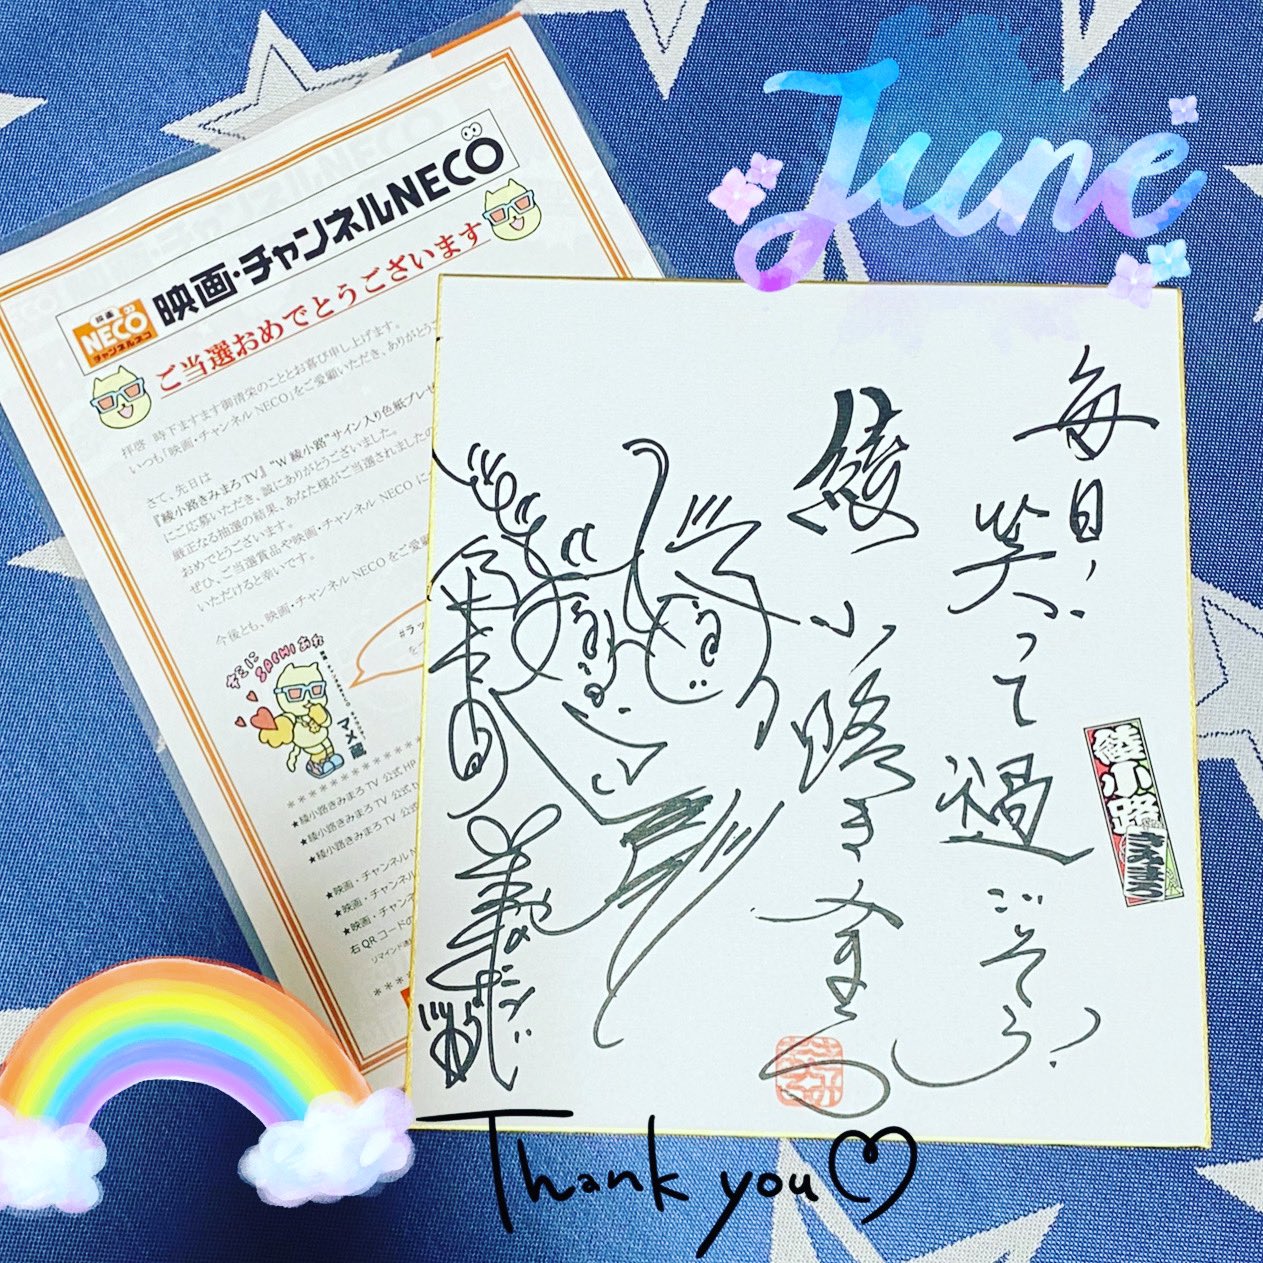 June
映画・チャンネルNECO
映画
NECO
チャンネルネコ
ご当選おめでとうございます
拝啓 時下ますます御清栄のこととお喜び申し上げます。
いつも「映画・チャンネルNECO」をご愛顧いただき、ありがとうご
さて、先日は
『綾小路きみまろTV』“W綾小路”サイン入り色紙プレゼ
にご応募いただき、誠にありがとうございました。
厳正なる抽選の結果、あなた様がご当選されましたの
おめでとうございます。
ぜひ、ご当選賞品や映画・チャンネルNECOをご愛顧
いただけると幸いです。
今後とも、映画・チャンネルNECOに
#ラッ
を
そこに
SACHIあれ
マメ蔵
★綾小路きみまろTV 公式HP
★綾小路きみまろTV 公式
★綾小路きみまろTV 公式
★映画・チャンネルN
★映画・チャンネル
★映画・チャン
右QRコードの
リマインド通
毎日、
笑って過ごそう!
綾小路きみまろ
綾小路
きみまろ
Thank you♡